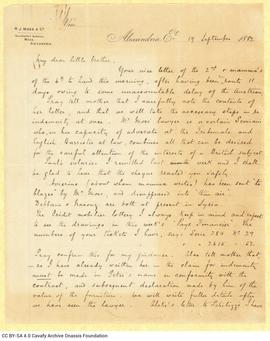 R. J. Moss & Co
Alexandria.
Alexandria Et. 19 September 1882
My dear little brother,
Your nice letter of the 2nd & mamma's
of the 6th to hand this morning, after having been
days owing to some unaccountable delay of the Austrian
Pray tell mother that I carefully note the contents of
her letter, and that we shall take the necessary steps in re
indemnity at once. Mr Moss' lawyer is a certain
who, in his capacity of advocate at the Tribunals and
English Barrister at law, combines all that can be desired
for the careful attention of the interests of a British subject.
Paul's salaries I remitted last week and I shall
be glad to hear that the cheque reached you safely.
(about whom mamma writes) has been sent "to
blazes" by Mr Moss, and disappeared into thin air.
and are both at present in Syria
The Crédit mobilier lottery I always keep in mind and expect
to see the drawings in this week's The
numbers of your tickets I have, say: Serie 284 No 29
" 2616 " 52
Pray confirm this for my guidance. Also tell mother that,
as I have already written her in the claim for indemnity
must be made in Peter's name in conformity with the
contract, and subsequent declaration made by him of the
value of the furniture. We will write fuller details after
we have seen the lawyer. letter to
CC BY-SA 4.0 Cavafy Archive Onassis Foundation